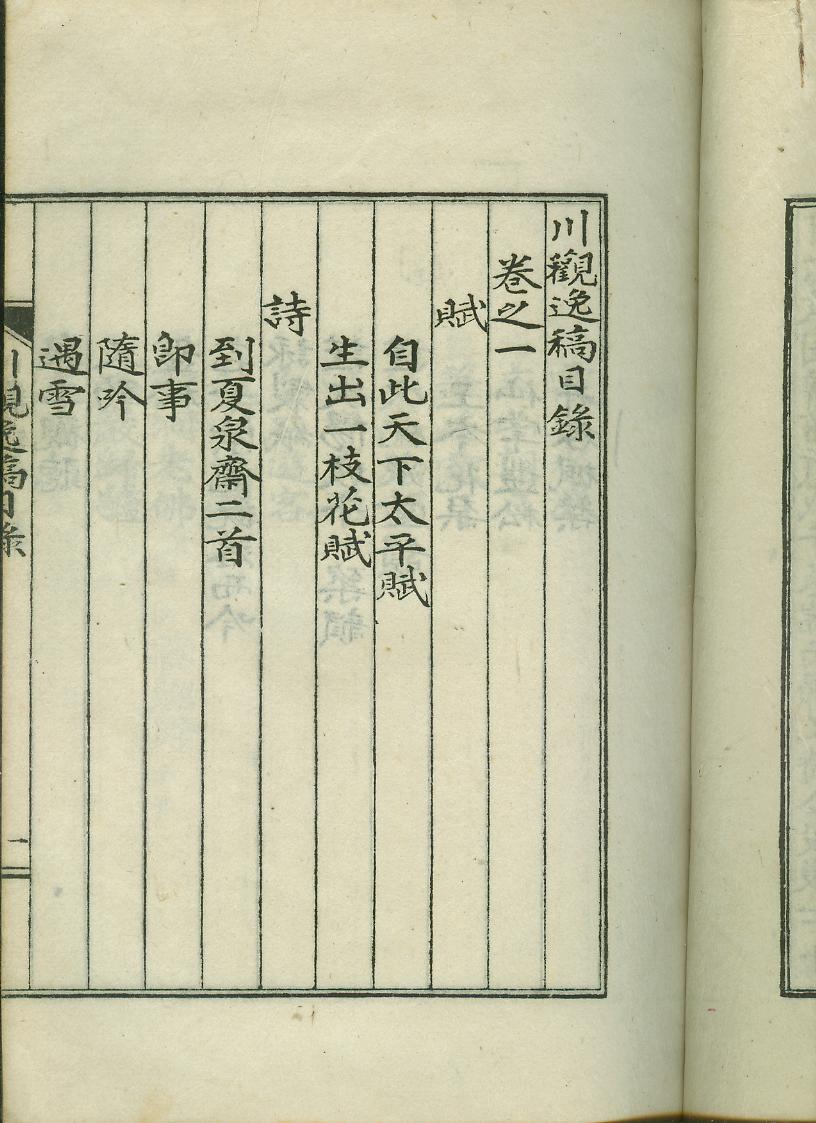 川觀逸稿目錄
卷之一
賦
自此天下太平賦
生出一枝花賦
詩
到夏泉齋二首
卽事
隨吟
遇雪
川觀逸稿目錄
一